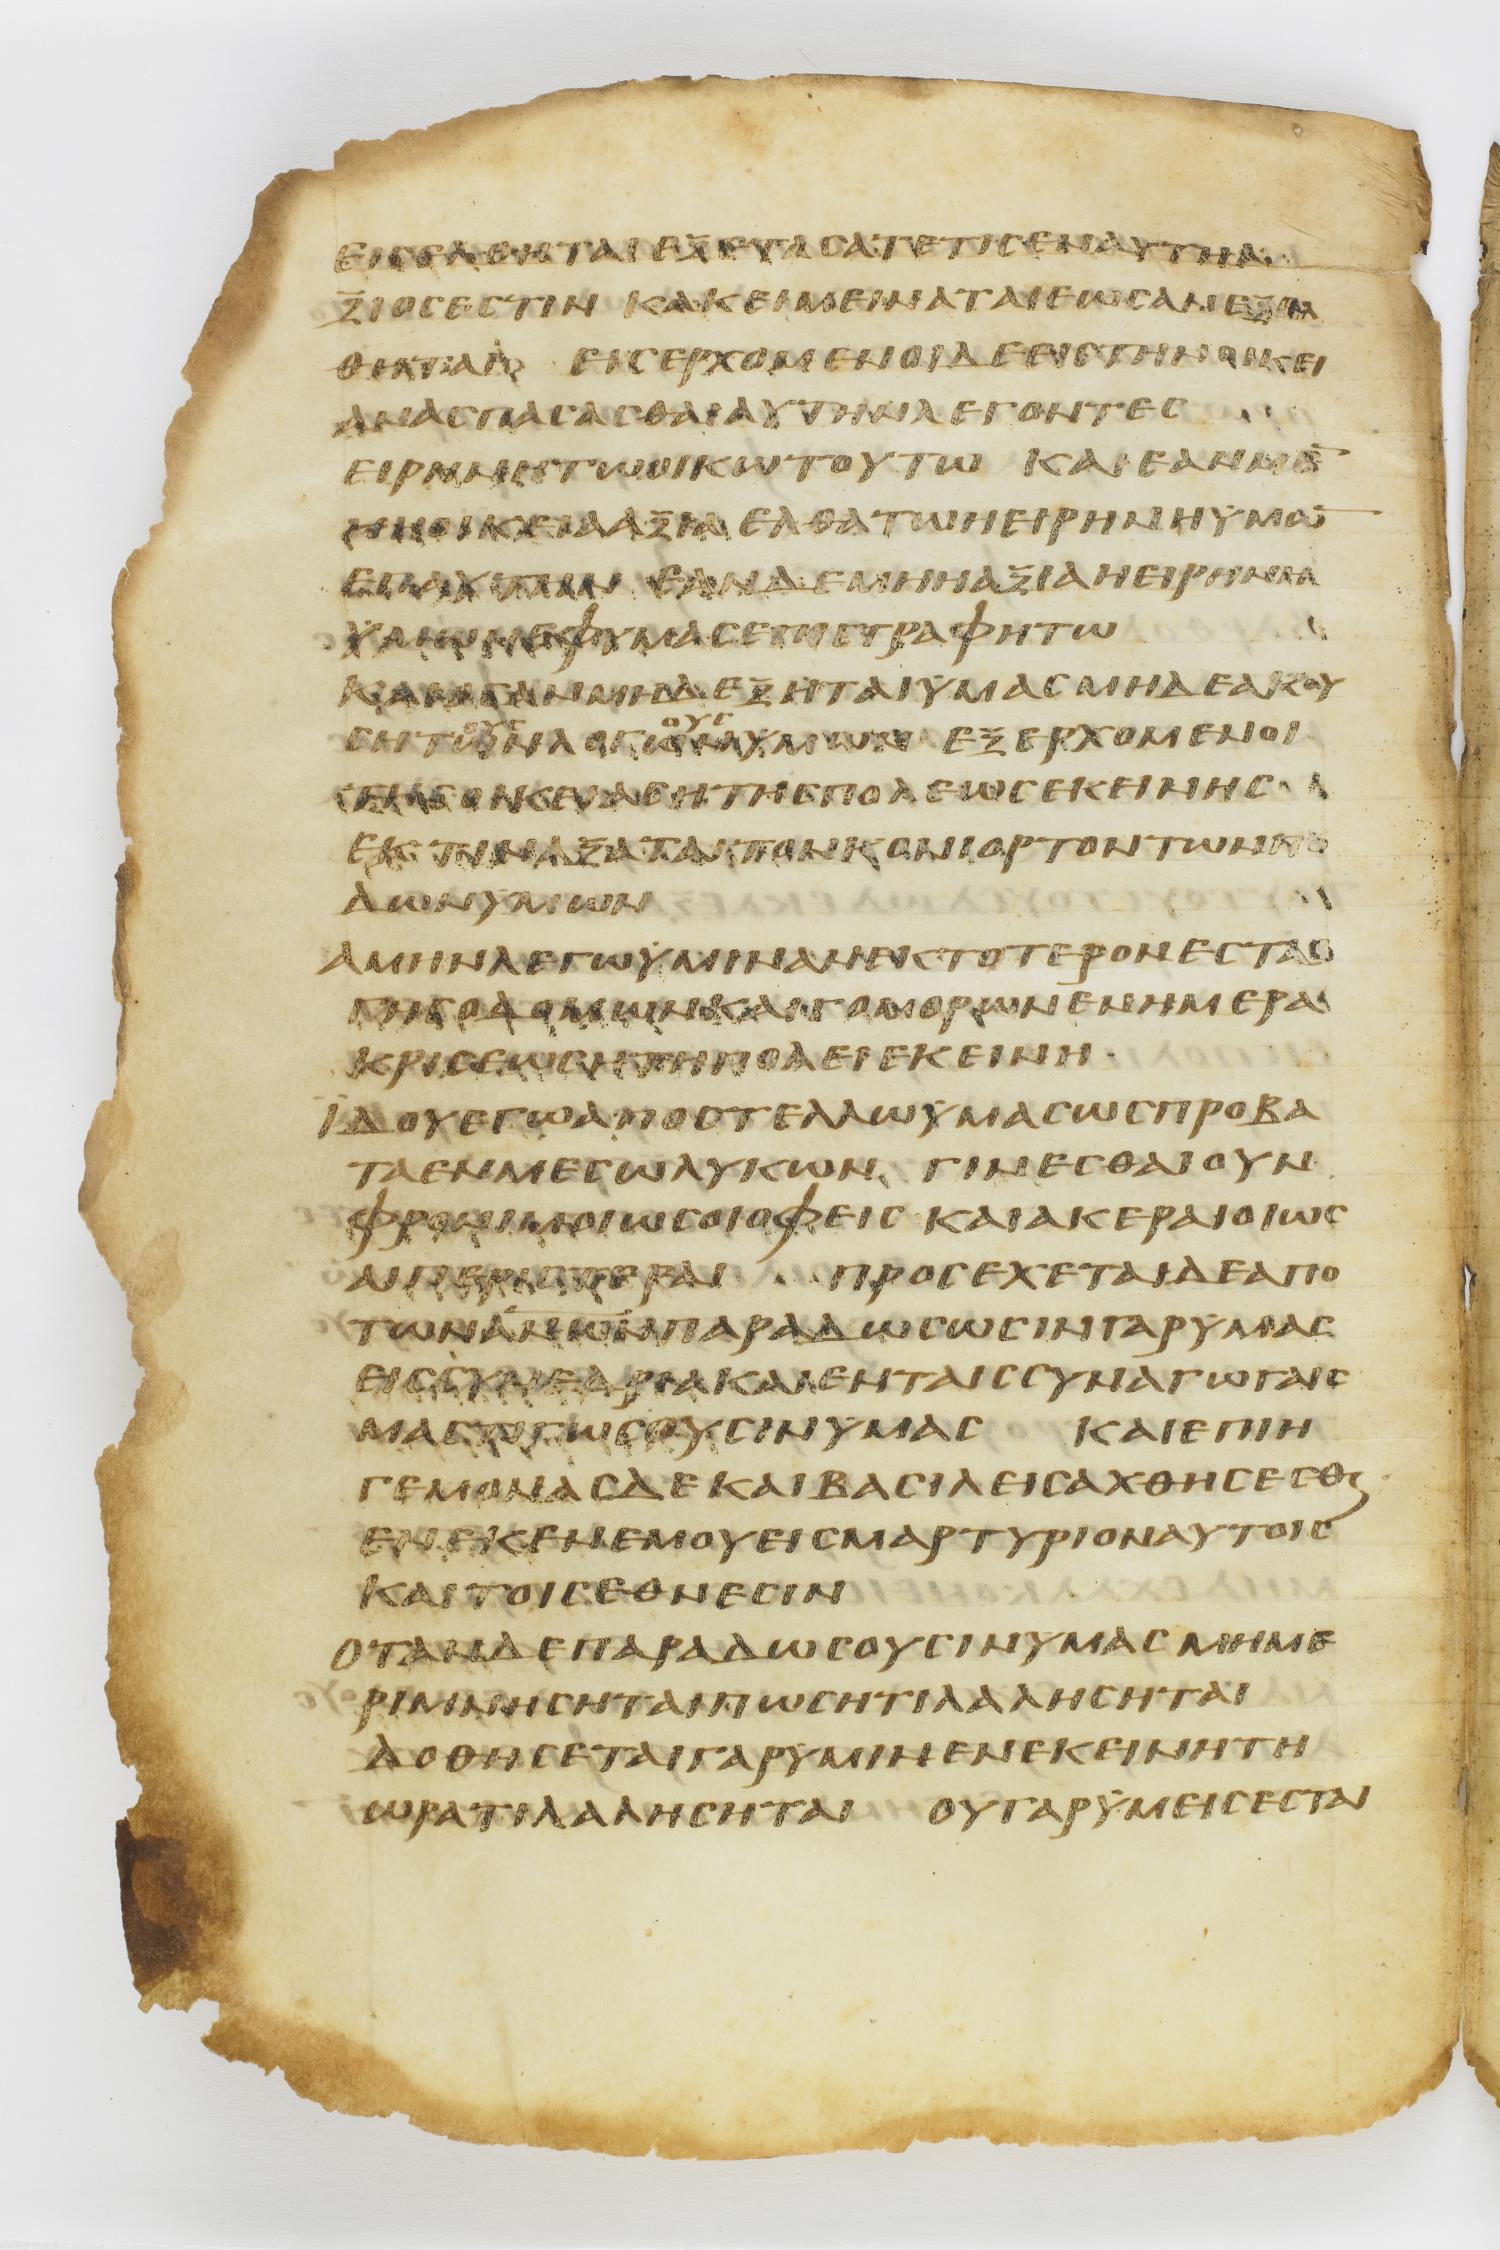 ΕΙΣΕΛΘΗΤΑΙ ΕΞΕΤΑΣΑΤΕΤΙΣΕΝΑΥΤΗΑ
ΞΙΟΣΕΣΤΙΝ ΚΑΚΕΙΜΕΙΝΑΤΑΙΕΩΣΑΝΕΞΕΛ
ΘΗΤΑΙ ΕΙΣΕΡΧΟΜΕΝΟΙΔΕΕΙΣΤΗΝΟΙΚΕΙ
ΑΝΑΣΠΑΣΑΣΘΑΙΑΥΤΗΝΛΕΓΟΝΤΕΣ
ΕΙΡΗΝΗΤΩΟΙΚΩΤΟΥΤΩ ΚΑΙΕΑΝΜΕ̄
ΗΗΟΙΚΕΙΑΑΞΙΑ ΕΛΘΑΤΩΗΕΙΡΗΝΗΫΜΩ̄
ΕΠΑΥΤΗΝ ΕΑΝΔΕΜΗΗΑΞΙΑΗΕΙΡΗΝΗ
ΫΜΩΝΕΦΥΜΑΣΕΠΙΣΤΡΑΦΗΤΩ
ΚΑΙΟΣΑΝΜΗΔΕΞΗΤΑΙΫΜΑΣΜΗΔΕΑΚΟΥ
ΣΗΤΟΥΣΛΟΓΟΥΣΫΜΩΝ ΕΞΕΡΧΟΜΕΝΟΙ
ΤΗΣΟΙΚΕΙΑΣΗΤΗΣΠΟΛΕΩΣΕΚΕΙΝΗΣ
ΕΚΤΙΝΑΞΑΤΑΙΤΟΝΚΟΝΙΟΡΤΟΝΤΩΝΠΟ
ΔΩΝΫΜΩΝ
ΑΜΗΝΛΕΓΩΫΜΙΝΑΝΕΚΤΟΤΕΡΟΝΕΣΤΑΙ
ΓΗΣΟΔΟΜΩΝΚΑΙΓΟΜΟΡΩΝΕΝΗΜΕΡΑ
ΚΡΙΣΕΩΣΗΤΗΠΟΛΕΙΕΚΕΙΝΗ·
ΪΔΟΥΕΓΩΑΠΟΣΤΕΛΛΩΫΜΑΣΩΣΠΡΟΒΑ
ΤΑΕΝΜΕΣΩΛΥΚΩΝ ΓΙΝΕΣΘΑΙΟΥΝ
ΦΡΟΝΙΜΟΙΩΣΟΙΟΦΕΙΣ ΚΑΙΑΚΕΡΑΙΟΙΩΣ
ΑΙΠΕΡΙΣΤΕΡΑΙ ΠΡΟΣΕΧΕΤΑΙΔΕΑΠΟ
ΤΩΝᾹΝ̄Ω̄Ν̄ΠΑΡΑΔΩΣΩΣΙΝΓΑΡΫΜΑΣ
ΕΙΣΣΥΝΕΔΡΙΑΚΑΙΕΝΤΑΙΣΣΥΝΑΓΩΓΑΙΣ
ΜΑΣΤΙΓΩΣΟΥΣΙΝΫΜΑΣ ΚΑΙΕΠΙΗ
ΓΕΜΟΝΑΣΔΕΚΑΙΒΑΣΙΛΕΙΣΑΧΘΗΣΕΣΘΕ
ΕΝΕΚΕΝΕΜΟΥΕΙΣΜΑΡΤΥΡΙΟΝΑΥΤΟΙΣ
ΚΑΙΤΟΙΣΕΘΝΕΣΙΝ
ΟΤΑΝΔΕΠΑΡΑΔΩΣΟΥΣΙΝΥΜΑΣΜΗΜΕ
ΡΙΜΝΗΣΗΤΑΙΠΩΣΗΤΙΛΑΛΗΣΗΤΑΙ
ΔΟΘΗΣΕΤΑΙΓΑΡΫΜΙΝΕΝΕΚΕΙΝΗΤΗ
ΩΡΑΤΙΛΑΛΗΣΗΤΑΙ ΟΥΓΑΡΫΜΕΙΣΕΣΤΑΙ